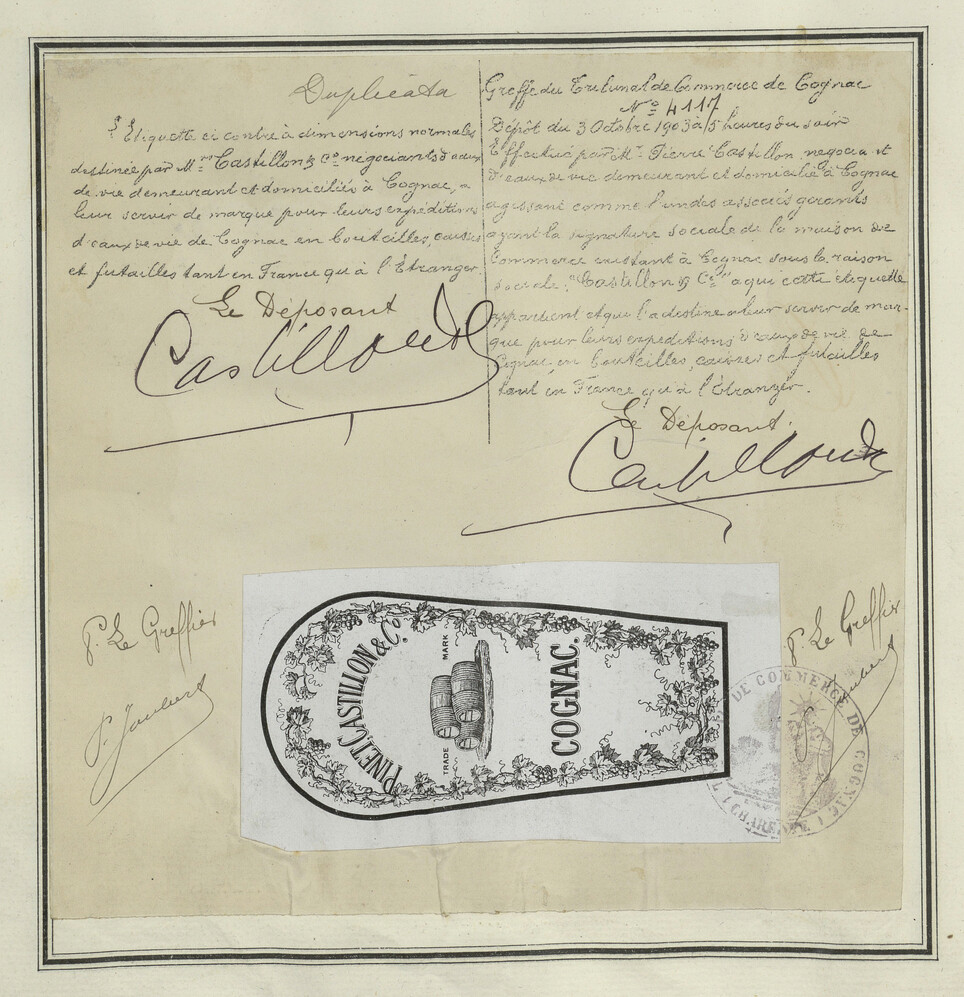 Duplicata
L'Etiquette ci contre à dimensions normales
destinée par Mrs Castillon & Co négociants d'eaux
de vie demeurant et domiciliés à Cognac, a
leur servir de marque pour leurs expéditions
d'eaux de vie de Cognac en bouteilles, caisses
et futailles tant en France qu'à l'Étranger.
Le Déposant
Castillon & Co
Greffe du Tribunal de Commerce de Cognac
No 4117
Dépôt du 3 Octobre 1903 à 5 heures du soir
Effectué par Mr Pierre Castillon, négociant
d'eaux de vie demeurant et domicilié à Cognac
agissant comme l'un des associés gérants
ayant la signature sociale de la maison de
Commerce existant à Cognac sous la raison
sociale: "Castillon & Co" a qui cette étiquette
appartient et qui l'a destine a leur servir de mar-
que pour leurs expéditions d'eaux de vie de
Cognac en bouteilles, caisses et futailles
tant en France qu'à l'Étranger.
Le Déposant.
Castillon & Co
P. Le Greffier
P. Le Greffier
PINET, CASTILLON & Co.
TRADE MARK
COGNAC.
DE COMMERCE DE COGNAC